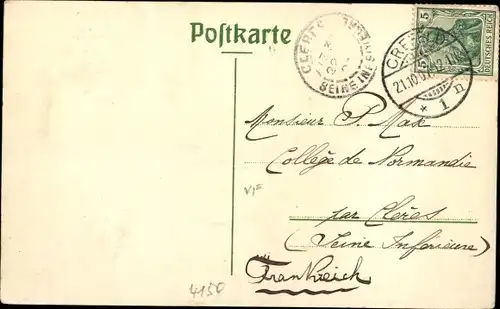 Postkarte
CLERES
SEINE INFRE
5
5
DEUTSCHES REICH
CREFELD
21.10.07.
* 1 n
Monsieur P. Max
Collège de Normandie
par Clères
(Seine Inférieure)
Frankreich
4150